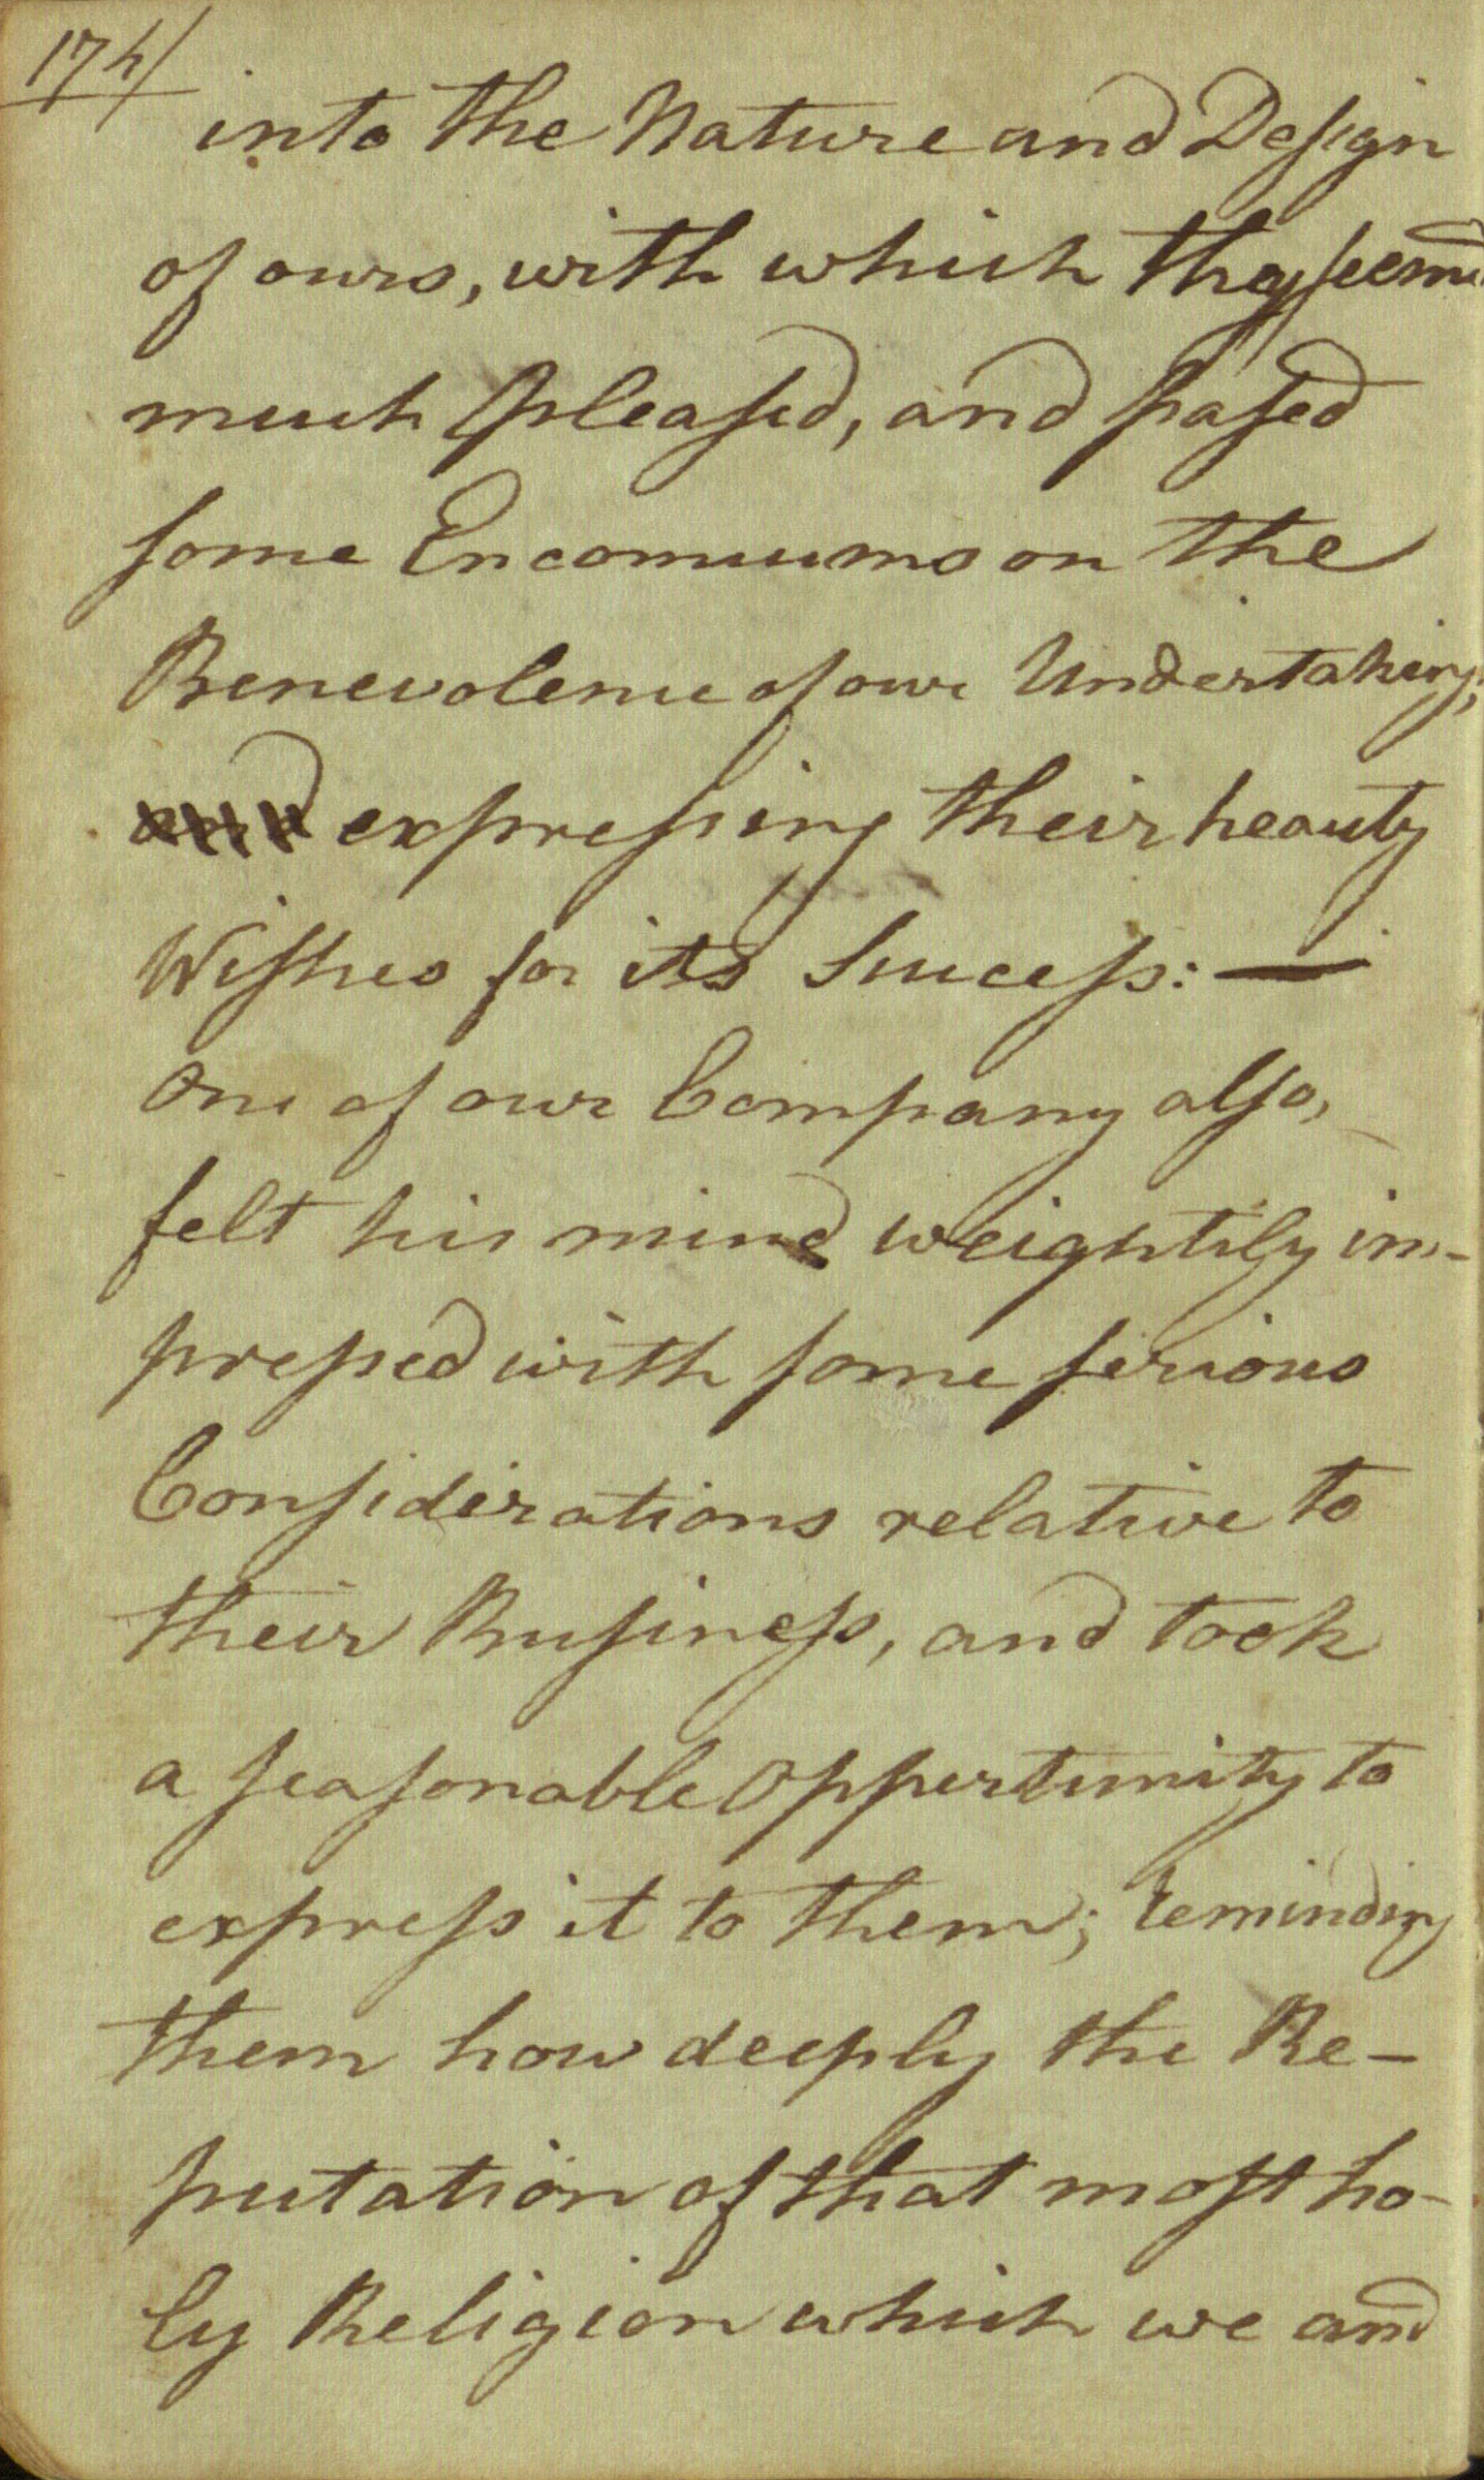 174/
into the Nature and Design
of ours, with which they seemed
much pleased, and passed
some Encomiums on the
Benevolence of our Undertaking,
and expressing their hearty
Wishes for its Success: —
One of our Company also,
felt his mind weightily im-
pressed with some serious
Considerations relative to
their Business, and took
a seasonable Oppertunity to
express it to them; reminding
them how deeply the Re-
putation of that most ho-
ly Religion which we and